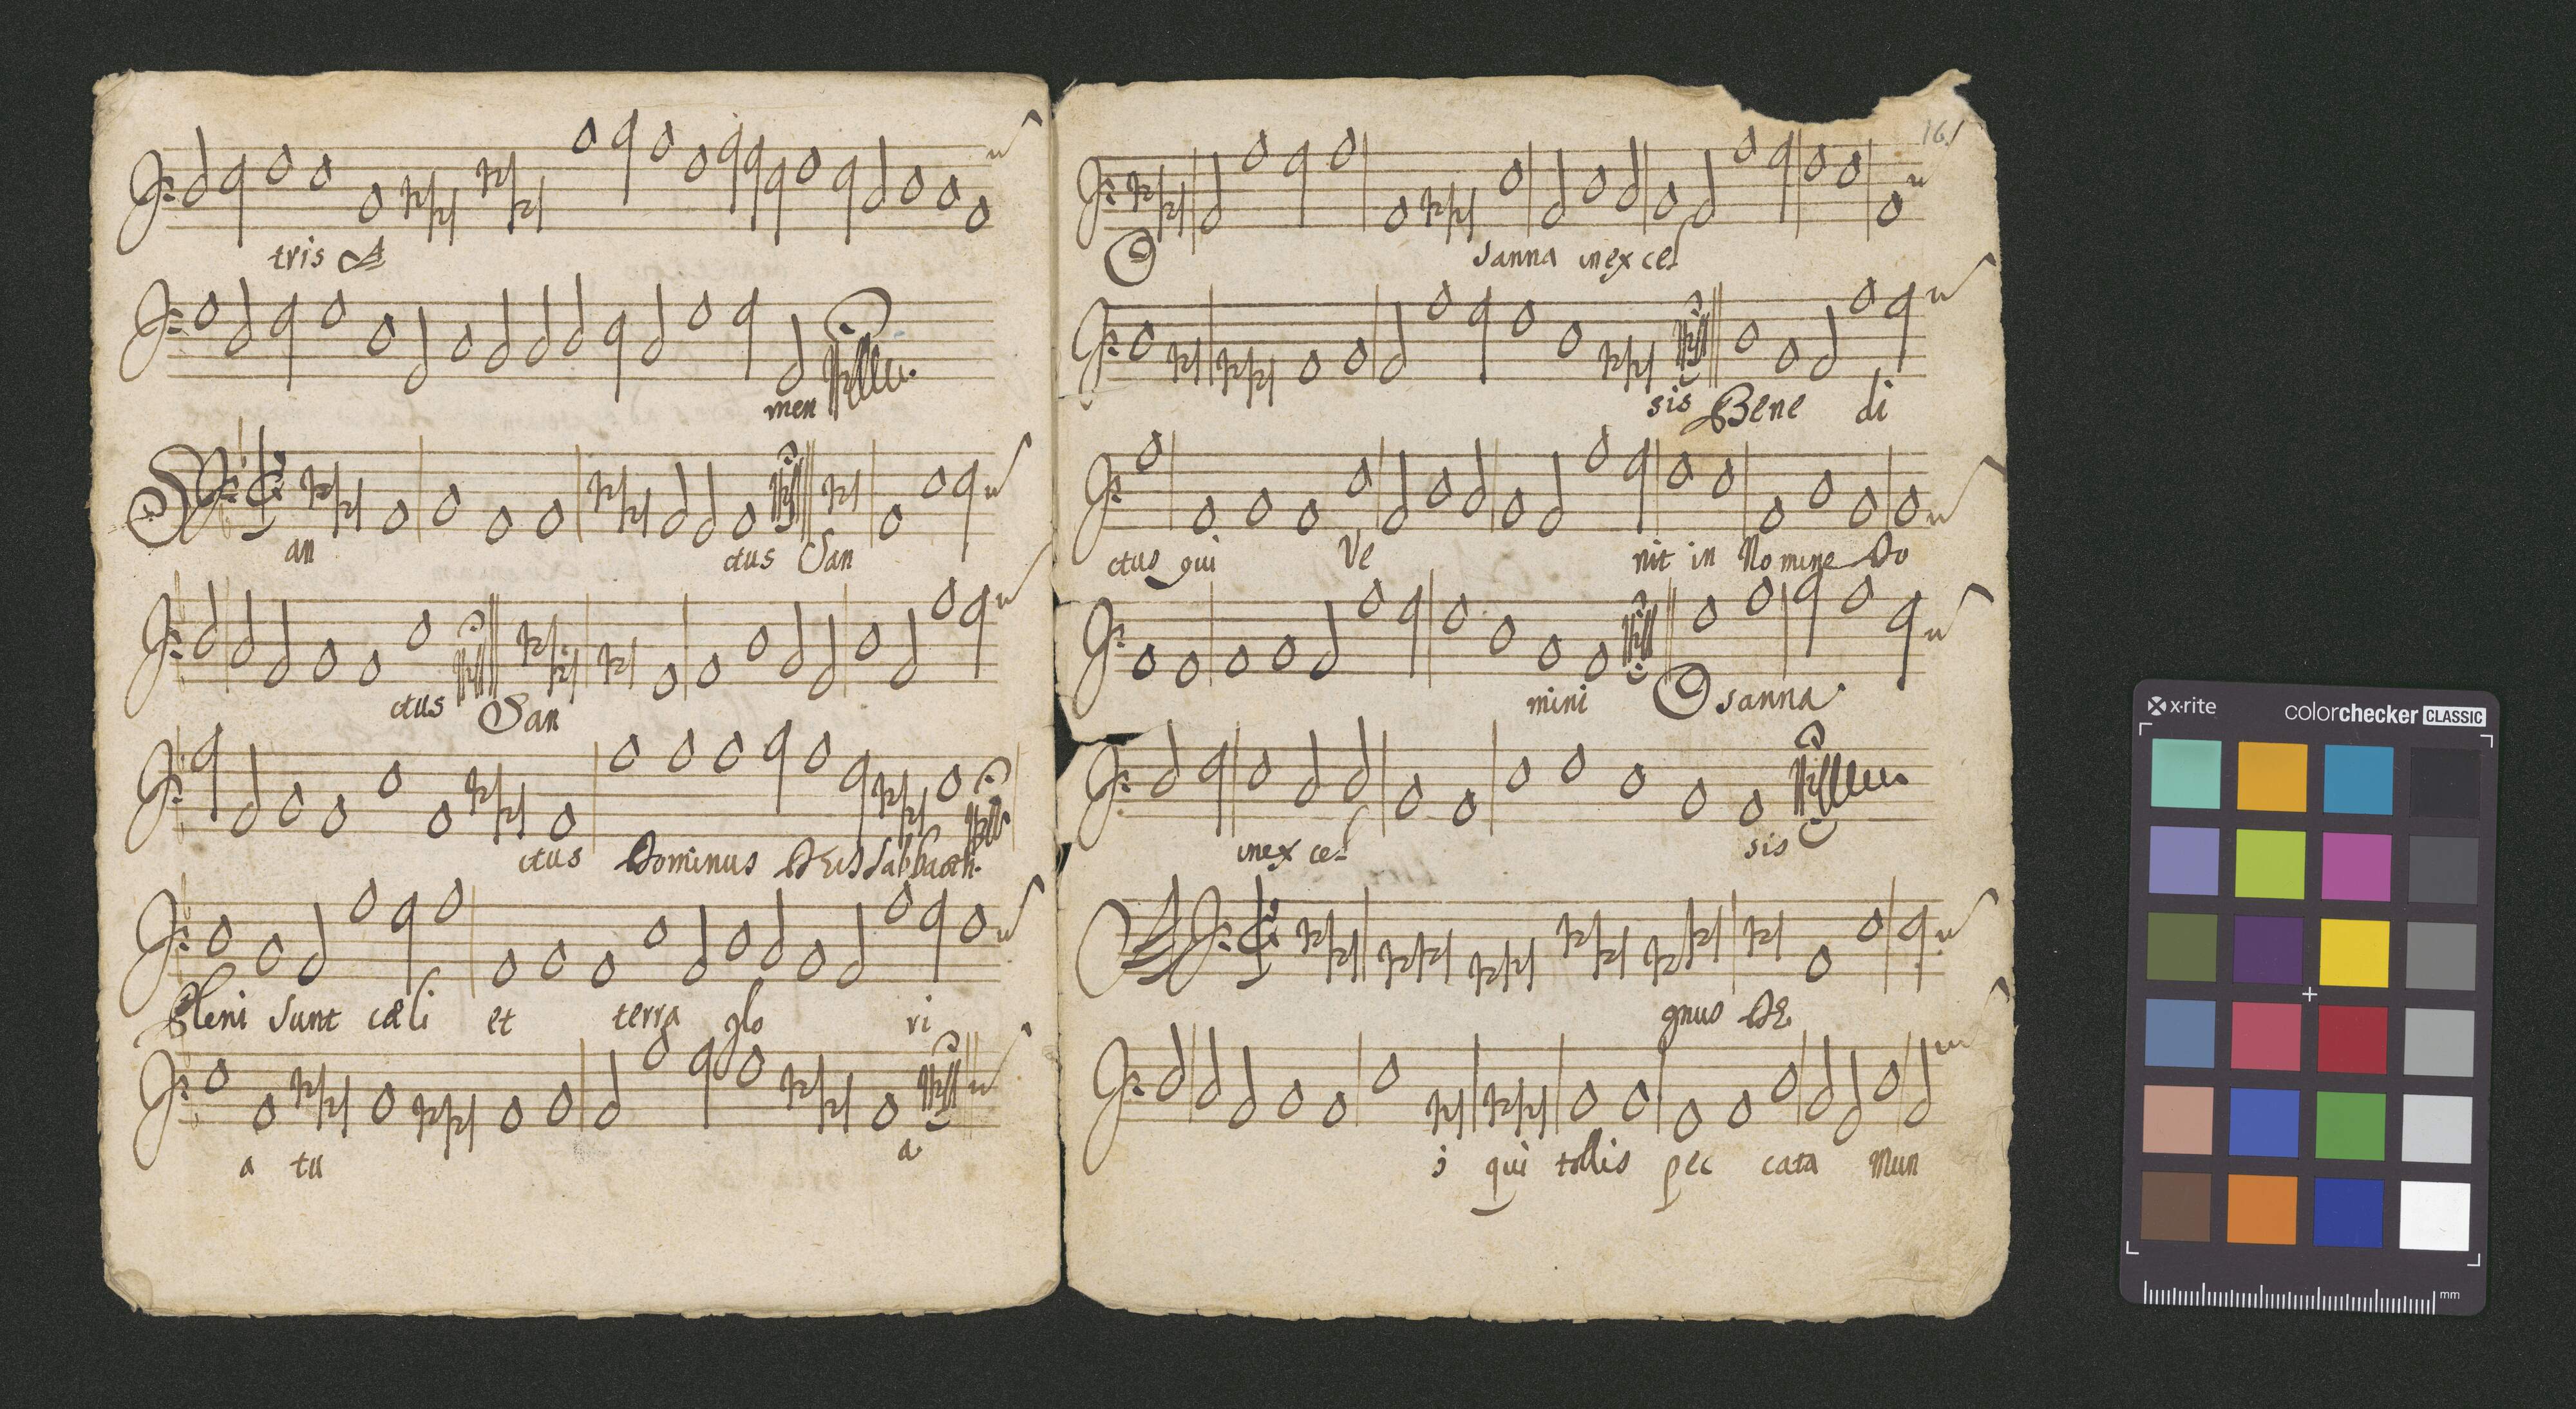 tris A
men
San ctus San
ctus San
ctus Dominus DEus Sabbaoth.
Pleni Sunt cæli et terra glo ri
a tu a.
161
O Sanna in excel
sis Bene di
ctus qui Ve nit in Nomine Do
mini Osanna.
in excel sis
A gnus DE
i qui tollis pec cata Mun
x·rite colorchecker CLASSIC
mm